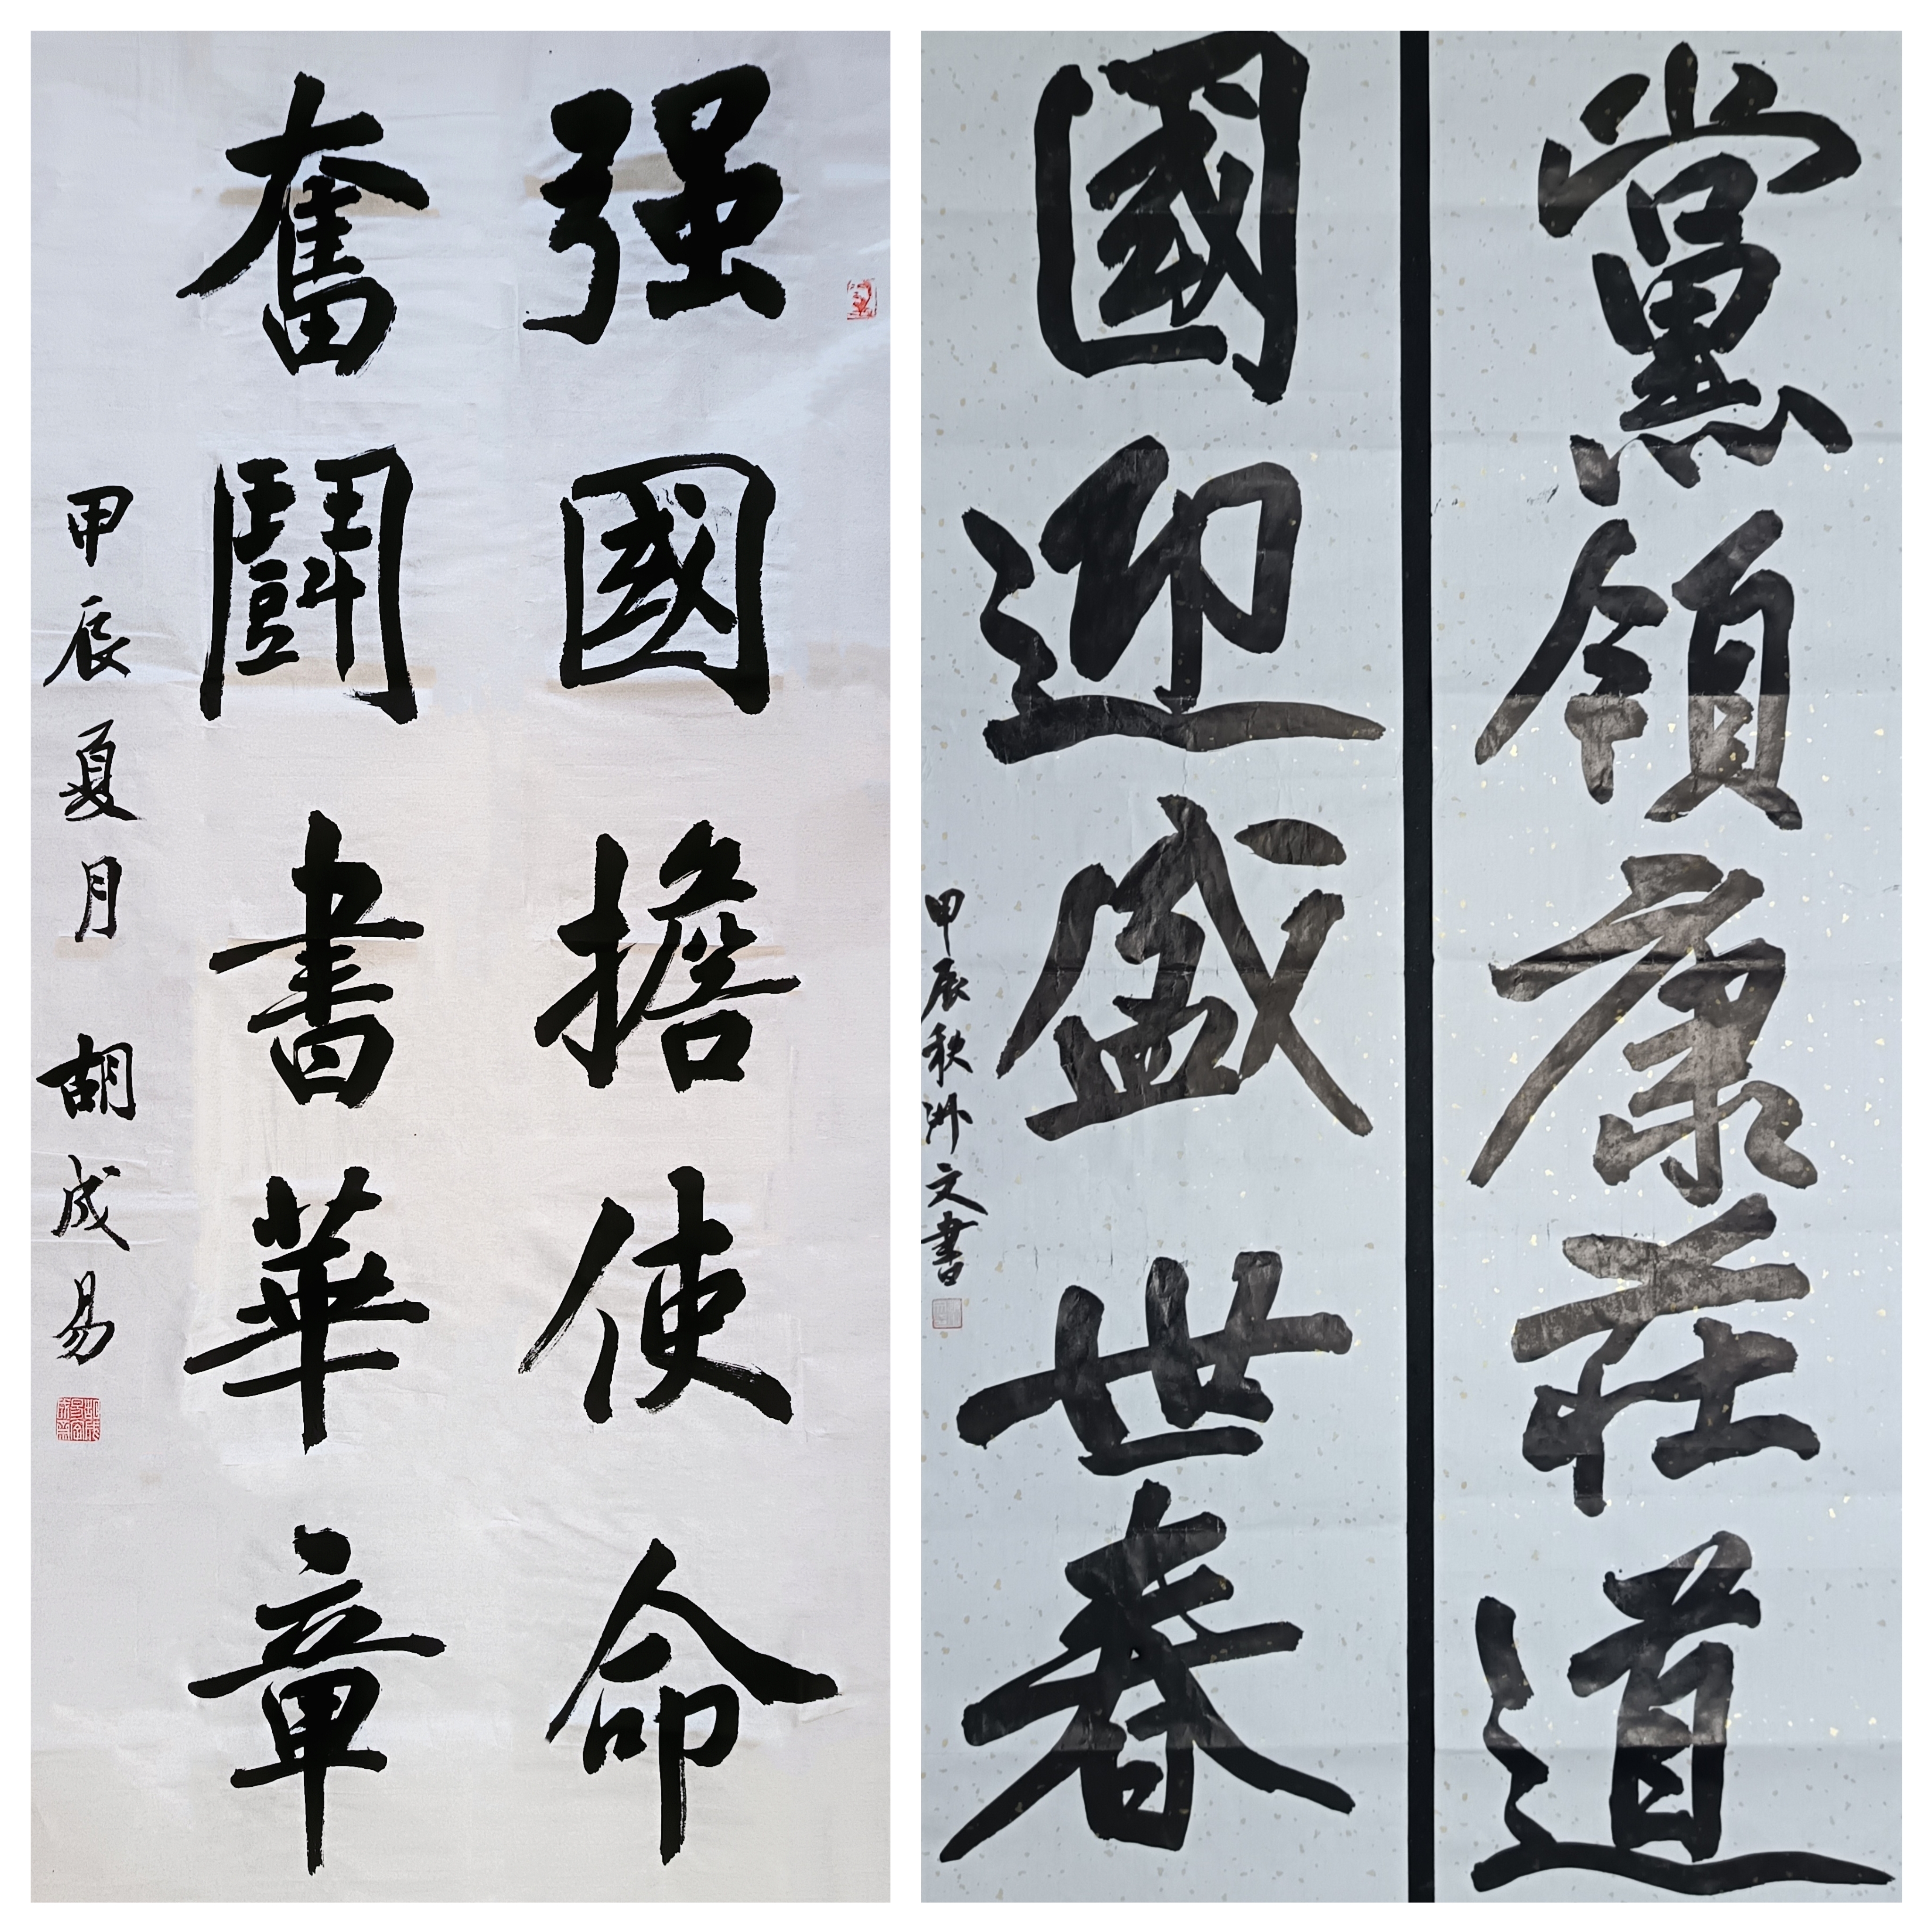 强國擔使命
奮鬭書華章
甲辰夏月 胡成易
黨領康莊道
國迎盛世春
甲辰秋洲文書